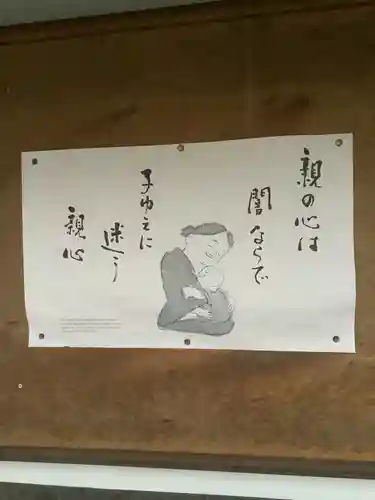 親の心は
闇ならで
子ゆえに
迷う
親心